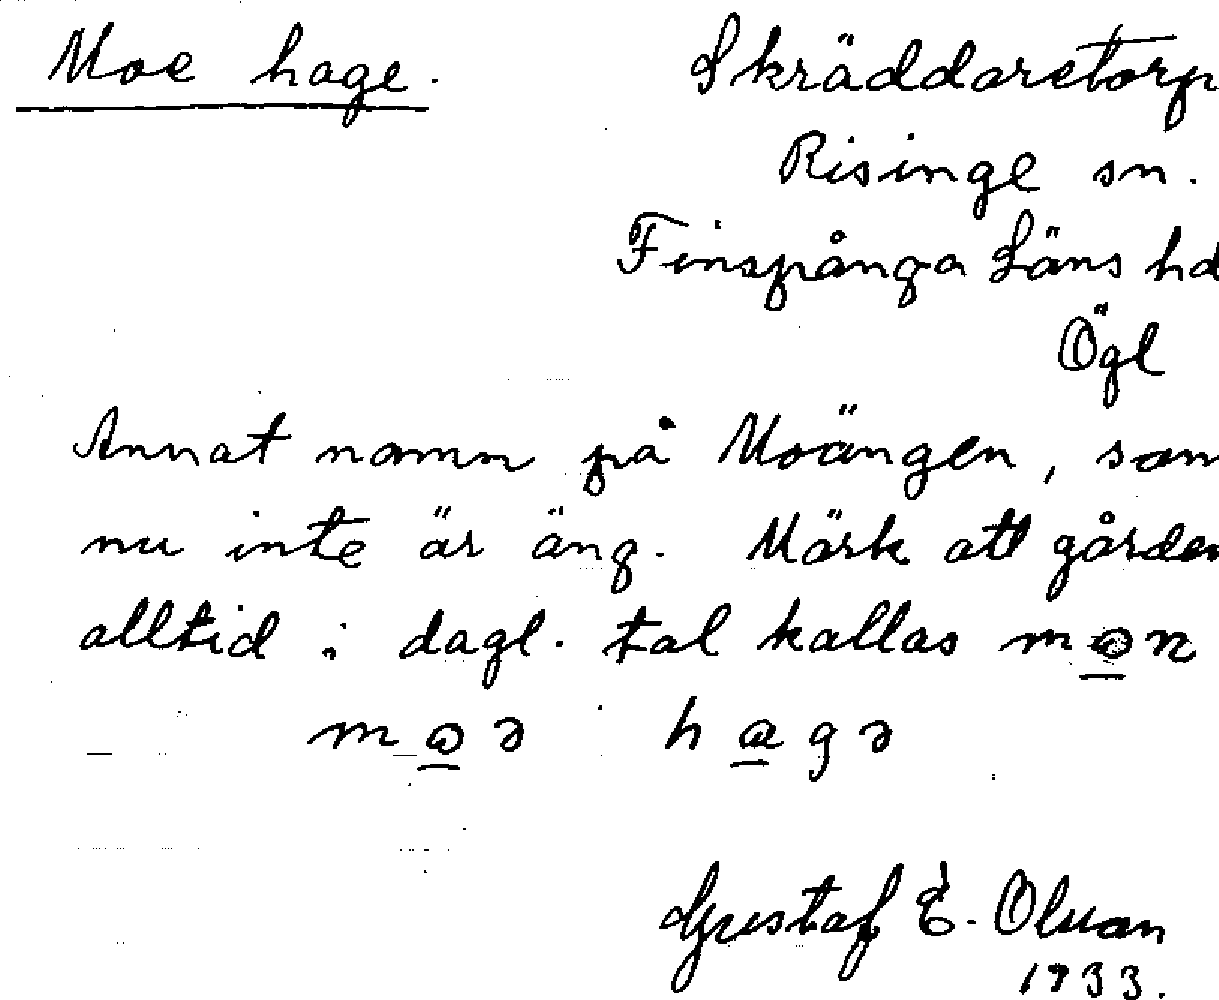 Moe hage. Skräddaretorp
Risinge sn.
Finspånga Läns hd
Ögl
Annat namn på Moängen, som
nu inte är äng. Märk att gården
alltid i dagl. tal kallas
hagə
Gustaf E. Olsson
1933.